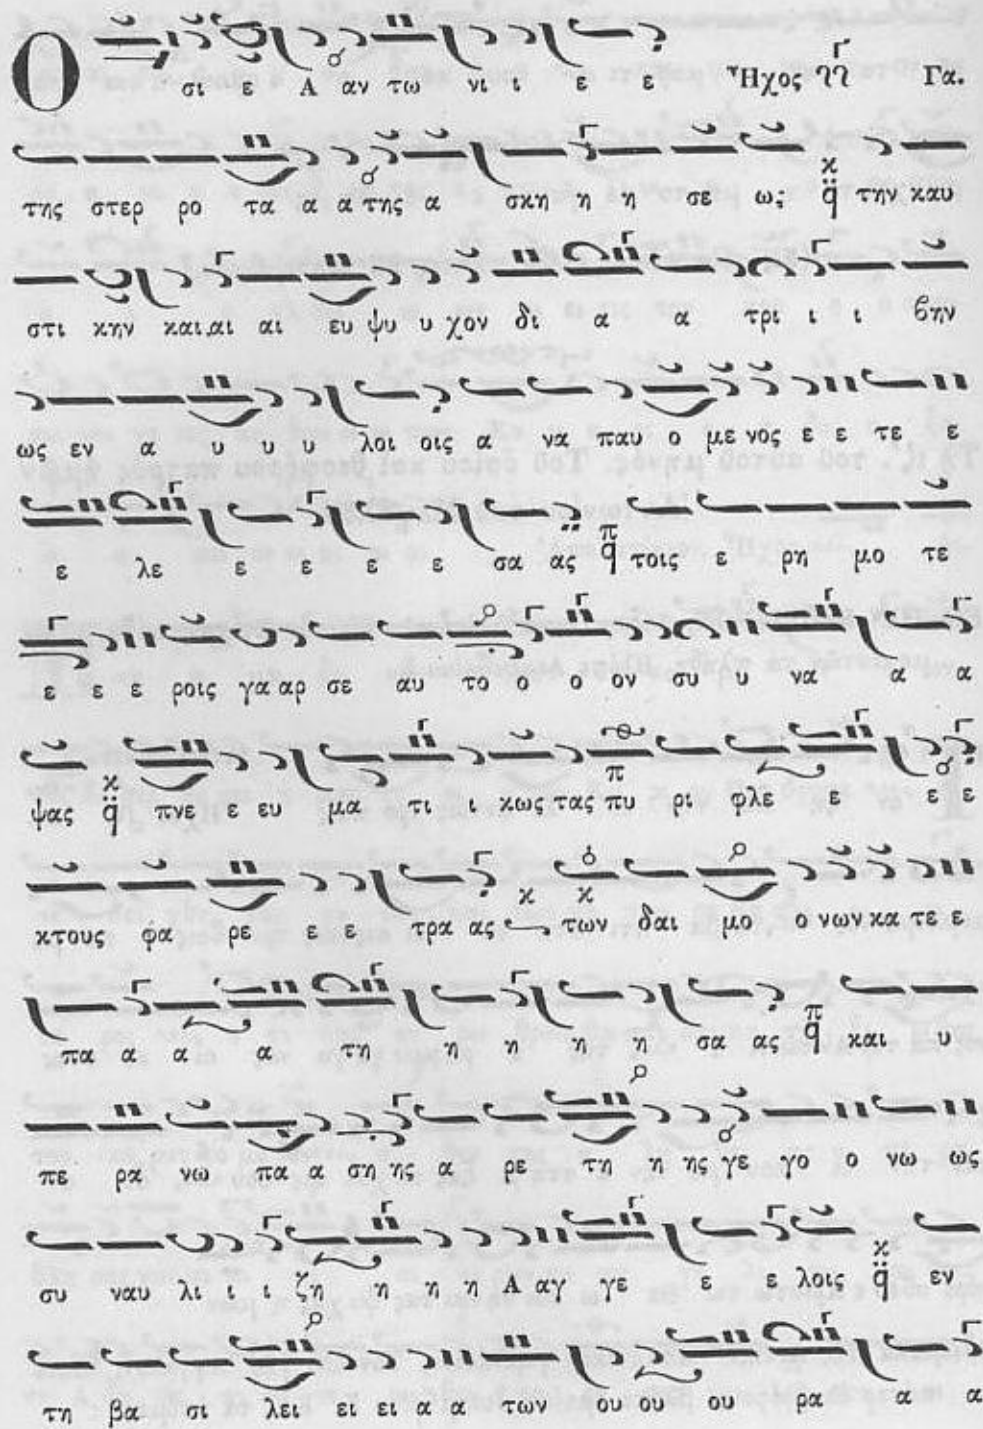 Ο σι ε Α αν τω νι ι ε ε Ἦχος Γα.
της στερ ρο τα α α της α σκη η η σε ως; κ q την καυ
στι κην και αι αι ευ ψυ υ χον δι α α τρι ι ι βην
ως εν α υ υ υ λοι οις α να παυ ο με νος ε ε τε ε
ε λε ε ε ε ε σα ας π q τοις ε ρη μο τε
ε ε ε ροις γα αρ σε αυ το ο ο ον συ υ να α α
ψας κ q πνε ε ευ μα τι ι κως τας πυ ρι φλε ε ε ε
κτους φα ρε ε ε τρα ας κ των δαι μο ο νων κα τε ε
πα α α α τη η η η η σα ας π q και υ
πε ρα νω πα α ση ης α ρε τη η ης γε γο ο νω ως
συ ναυ λι ι ι ζη η η η Α αγ γε ε ε λοις κ q εν
τη βα σι λει ει ει α α των ου ου ου ρα α α